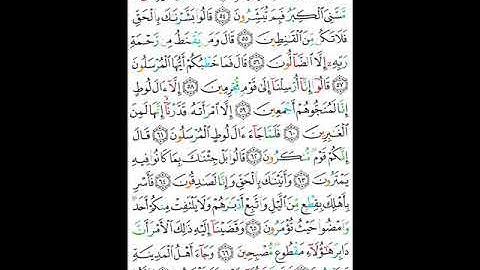 مَّسَّنِىَ ٱلْكِبَرُ فَبِمَ تُبَشِّرُونَ ٥٤ قَالُوا۟ بَشَّرْنَٰكَ بِٱلْحَقِّ
فَلَا تَكُن مِّنَ ٱلْقَٰنِطِينَ ٥٥ قَالَ وَمَن يَقْنَطُ مِن رَّحْمَةِ
رَبِّهِۦٓ إِلَّا ٱلضَّآلُّونَ ٥٦ قَالَ فَمَا خَطْبُكُمْ أَيُّهَا ٱلْمُرْسَلُونَ
٥٧ قَالُوٓا۟ إِنَّآ أُرْسِلْنَآ إِلَىٰ قَوْمٍ مُّجْرِمِينَ ٥٨ إِلَّآ ءَالَ لُوطٍ
إِنَّا لَمُنَجُّوهُمْ أَجْمَعِينَ ٥٩ إِلَّا ٱمْرَأَتَهُۥ قَدَّرْنَآ إِنَّهَا لَمِنَ
ٱلْغَٰبِرِينَ ٦٠ فَلَمَّا جَآءَ ءَالَ لُوطٍ ٱلْمُرْسَلُونَ ٦١ قَالَ
إِنَّكُمْ قَوْمٌ مُّنكَرُونَ ٦٢ قَالُوا۟ بَلْ جِئْنَٰكَ بِمَا كَانُوا۟ فِيهِ
يَمْتَرُونَ ٦٣ وَأَتَيْنَٰكَ بِٱلْحَقِّ وَإِنَّا لَصَٰدِقُونَ ٦٤ فَأَسْرِ
بِأَهْلِكَ بِقِطْعٍ مِّنَ ٱلَّيْلِ وَٱتَّبِعْ أَدْبَٰرَهُمْ وَلَا يَلْتَفِتْ مِنكُمْ أَحَدٌ
وَٱمْضُوا۟ حَيْثُ تُؤْمَرُونَ ٦٥ وَقَضَيْنَآ إِلَيْهِ ذَٰلِكَ ٱلْأَمْرَ أَنَّ
دَابِرَ هَٰٓؤُلَآءِ مَقْطُوعٌ مُّصْبِحِينَ ٦٦ وَجَآءَ أَهْلُ ٱلْمَدِينَةِ